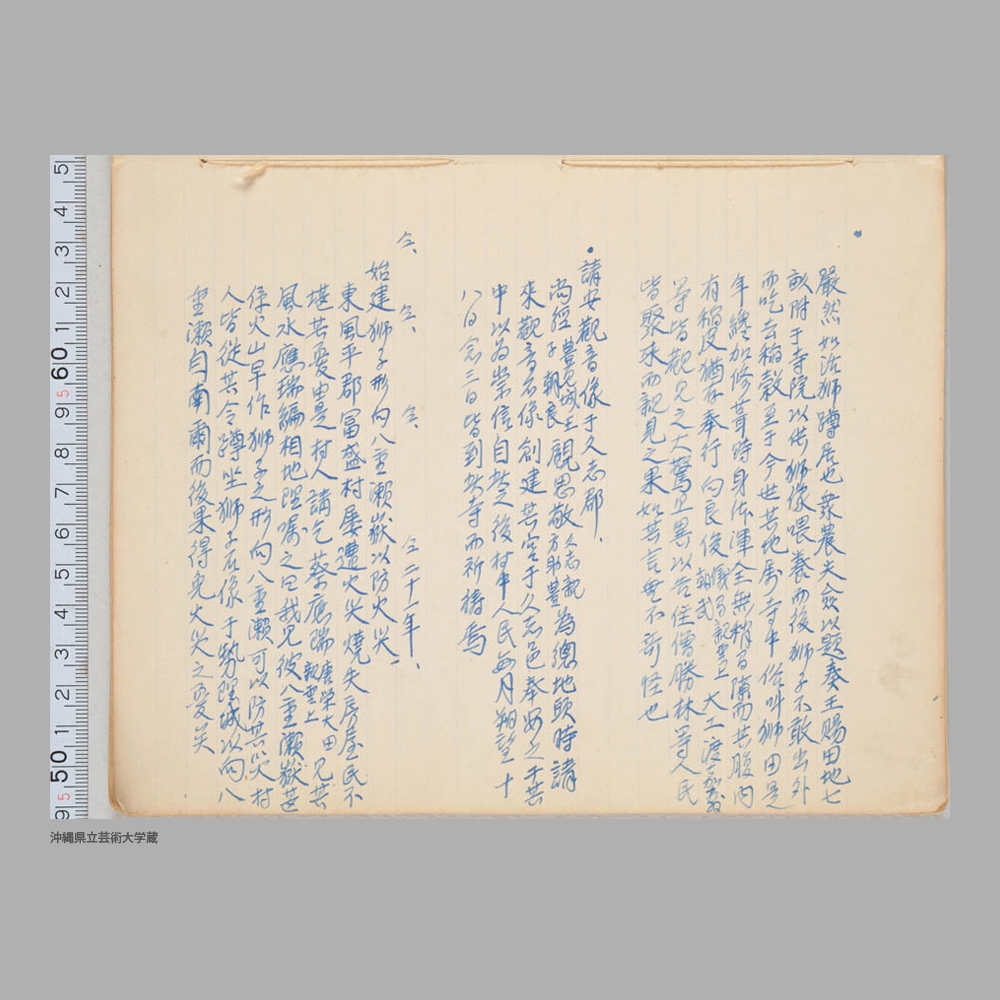 嚴然如活獅蹲居也衆農夫僉以題奏王賜田地七
畝附于寺院以供獅像喂養而後獅子不敢出外
而吃去稲穀至于今世其地属寺中俗叫獅田是
年繕加修葺時身体渾全無稍有隙而其腹内
有稲皮猶存奉行向良俊 儀間親雲上朝武 大工渡嘉敷
等皆觀見之大驚且異以告住僧勝林等人民
皆聚来而親見之果如其言無不奇怪也
講安觀音像于久志郡、
尚經 豊見城王子朝良 顧思敬 久志親方助豊 為總地頭時講
來觀音石像創建其宮于久志邑奉安之于其
中以為崇信自此之後村中人民毎月朔望十
八日念三日皆到此寺而祈禱焉
仝、仝、仝、仝二十一年、
始建獅子形向八重瀬嶽以防火災、
東風平郡冨盛村屡遭火災燒失房屋民不
堪其憂由是村人講乞蔡應瑞 唐榮大田親雲上 見其
風水應瑞編相地理嘱之曰我見彼八重瀬嶽甚
係火山早作獅子之形向八重瀬可以防其災村
人皆從其令蹲坐獅子石像于勢理城以向八
重瀬自南爾而後果得免火災之憂矣
5 4 3 2 1 60 9 8 7 6 5 4 3 2 1 50 9
沖縄県立芸術大学蔵